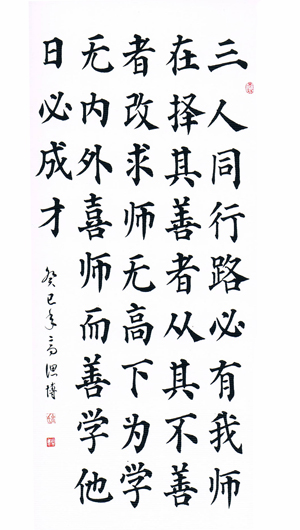 三人同行路必有我师
在择其善者从其不善
者改求师无高下为学
无内外喜师而善学他
日必成才
癸巳年高博